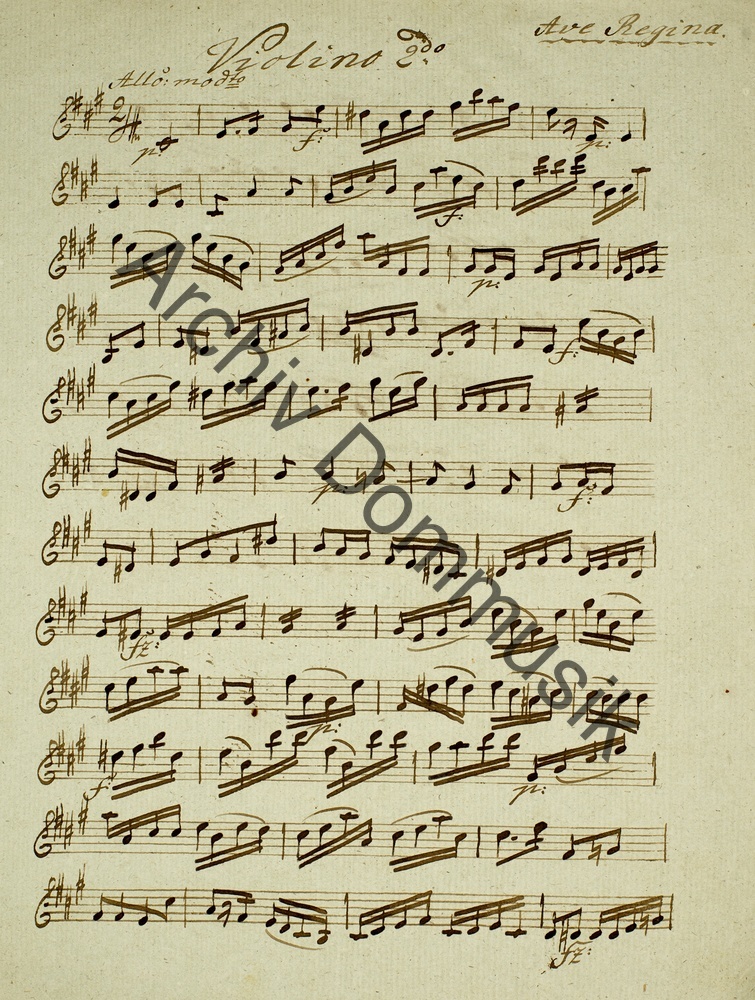 Ave Regina.
Violino 2do
Allo: modto
2/4
p: f: p:
f:
p:
f:
p:
f:
fz:
p:
f: p:
fz:
Archiv Dommusik